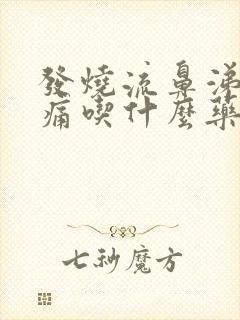 發燒流鼻涕
痛喫什麼藥
七秒魔方